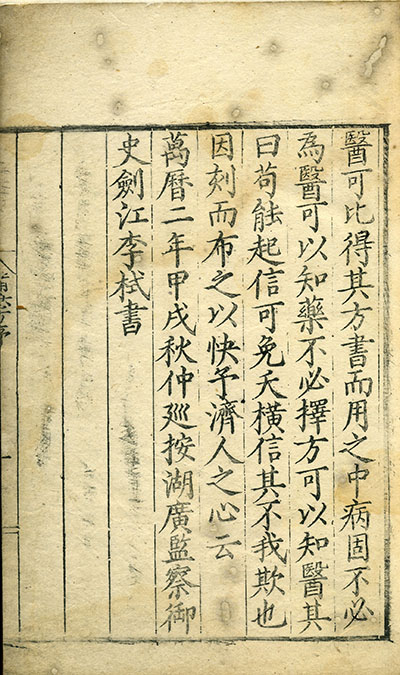 醫可比得其方書而用之中病固不必
為醫可以知藥不必擇方可以知醫其
曰苟能起信可免夭橫信其不我欺也
因刻而布之以快予濟人之心云
萬曆二年甲戌秋仲廵按湖廣監察御
史劍江李栻書